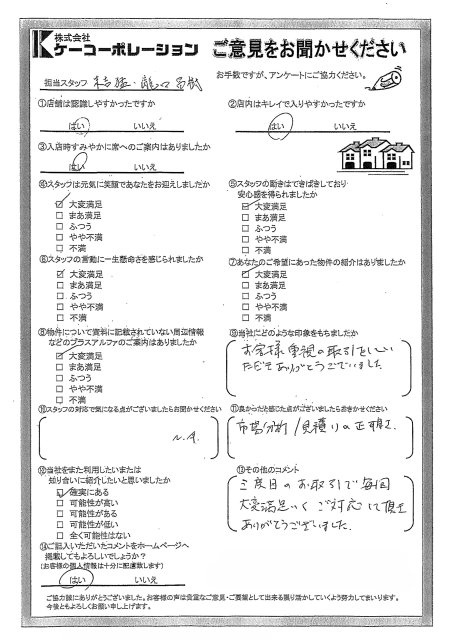 株式会社
ケーコーポレーション
ご意見をお聞かせください
担当スタッフ
お手数ですが、アンケートにご協力ください。
①店舗は認識しやすかったですか
はい いいえ
②店内はキレイで入りやすかったですか
はい いいえ
③入店時すみやかに席へのご案内はありましたか
はい いいえ
④スタッフは元気に笑顔であなたをお迎えしましたか
大変満足
まあ満足
ふつう
やや不満
不満
⑤スタッフの動きはてきぱきしており
安心感を得られましたか
大変満足
まあ満足
ふつう
やや不満
不満
⑥スタッフの言動に一生懸命さを感じられましたか
大変満足
まあ満足
ふつう
やや不満
不満
⑦あなたのご希望にあった物件の紹介はありましたか
大変満足
まあ満足
ふつう
やや不満
不満
⑧物件について資料に記載されていない周辺情報
などのプラスアルファのご案内はありましたか
大変満足
まあ満足
ふつう
やや不満
不満
⑨当社にどのような印象をもちましたか
お客様重視の取引をしい
ただきありがとうございました
⑩スタッフの対応で気になる点がございましたらお聞かせください
N.A.
⑪良かったと感じた点がございましたらおきかせください
市場分析/見積りの正確さ
⑫当社をまた利用したいまたは
知り合いに紹介したいと思いましたか
確実にある
可能性が高い
可能性がある
可能性が低い
全く可能性はない
⑬その他のコメント
三度目のお取引で毎回
大変満足いくご対応して頂き
ありがとうございました.
⑭ご記入いただいたコメントをホームページへ
掲載してもよろしいでしょうか?
(お客様の個人情報は十分に配慮致します)
はい いいえ
ご協力誠にありがとうございました。お客様の声は貴重なご意見・ご要望として出来る限り活かしていくよう努力してまいります。
今後ともよろしくお願い申し上げます。